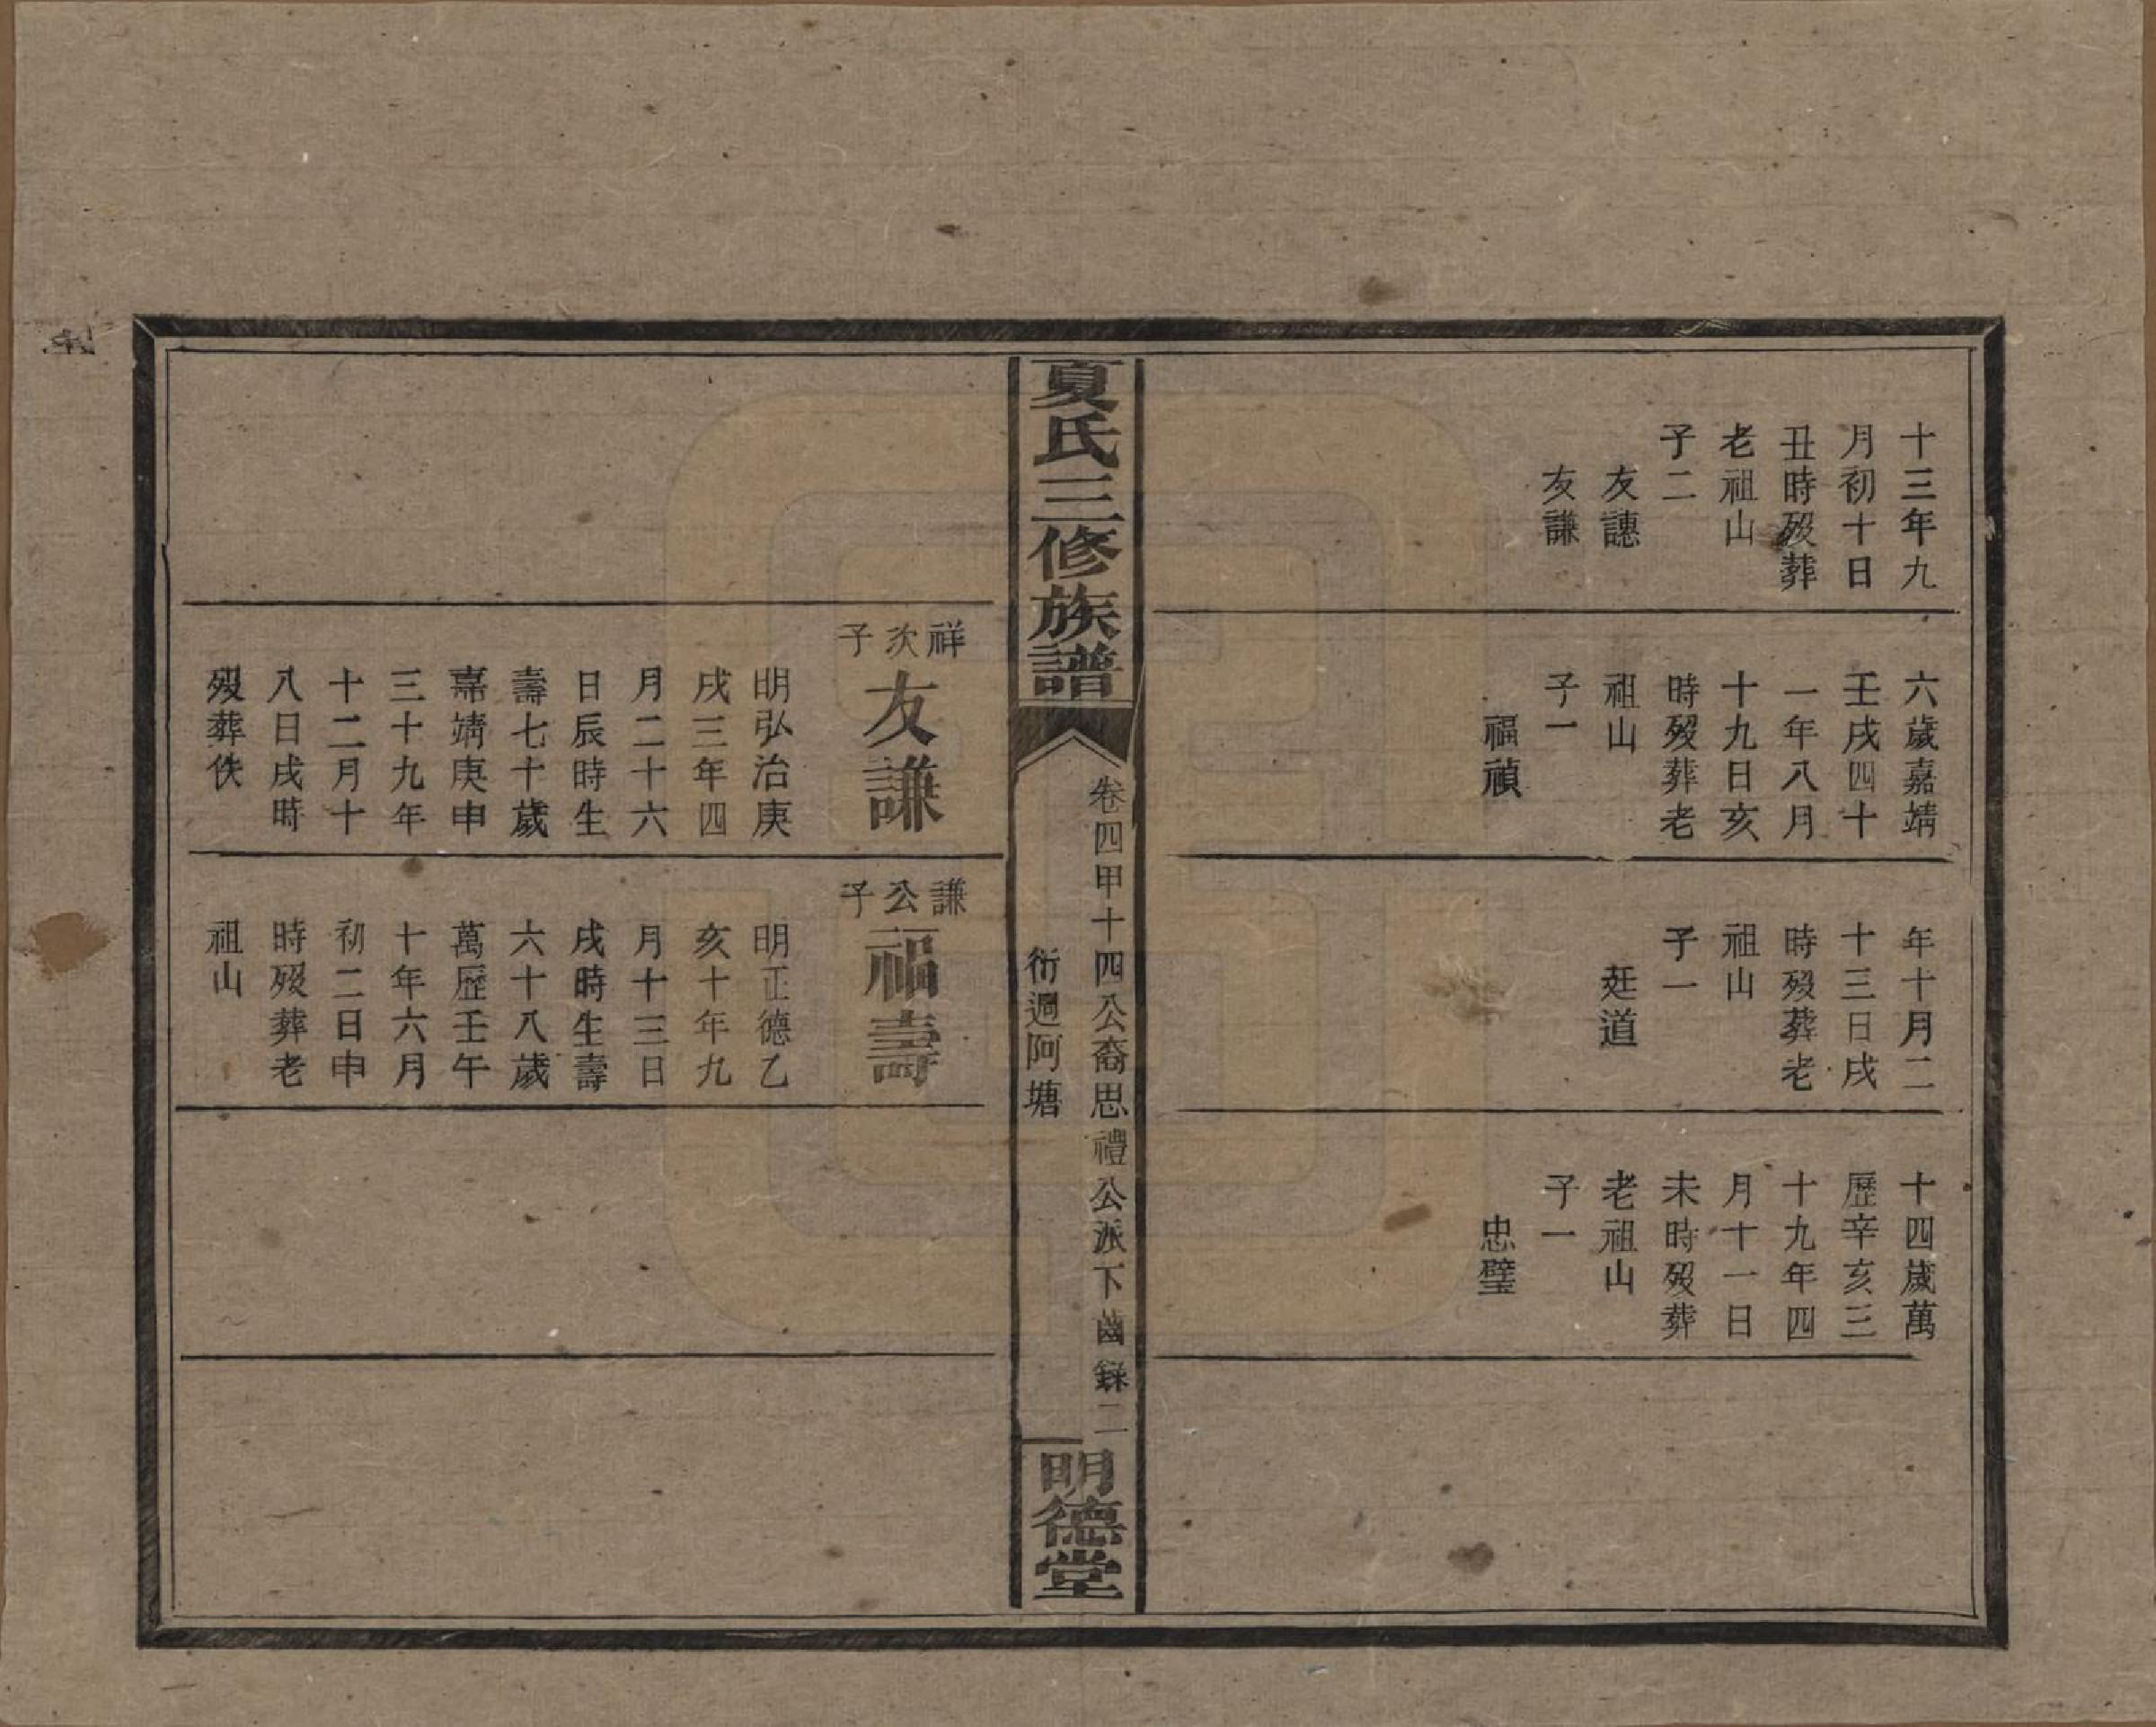 十三年九
月初十日
丑時歿葬
老祖山
子二
友譓
友謙
六歲嘉靖
壬戌四十
一年八月
十九日亥
時歿葬老
祖山
子一
福禎
年十月二
十三日戌
時歿葬老
祖山
子一
廷道
十四歲萬
歷辛亥三
十九年四
月十一日
未時歿葬
老祖山
子一
忠璧
夏氏三修族譜
卷四甲十四公裔思禮公派下齒錄二
衍迥阿塘
明德堂
祥次子
友謙
明弘治庚
戌三年四
月二十六
日辰時生
壽七十歲
嘉靖庚申
三十九年
十二月十
八日戌時
歿葬佚
謙公子
福壽
明正德乙
亥十年九
月十三日
戌時生壽
六十八歲
萬歷壬午
十年六月
初二日申
時歿葬老
祖山